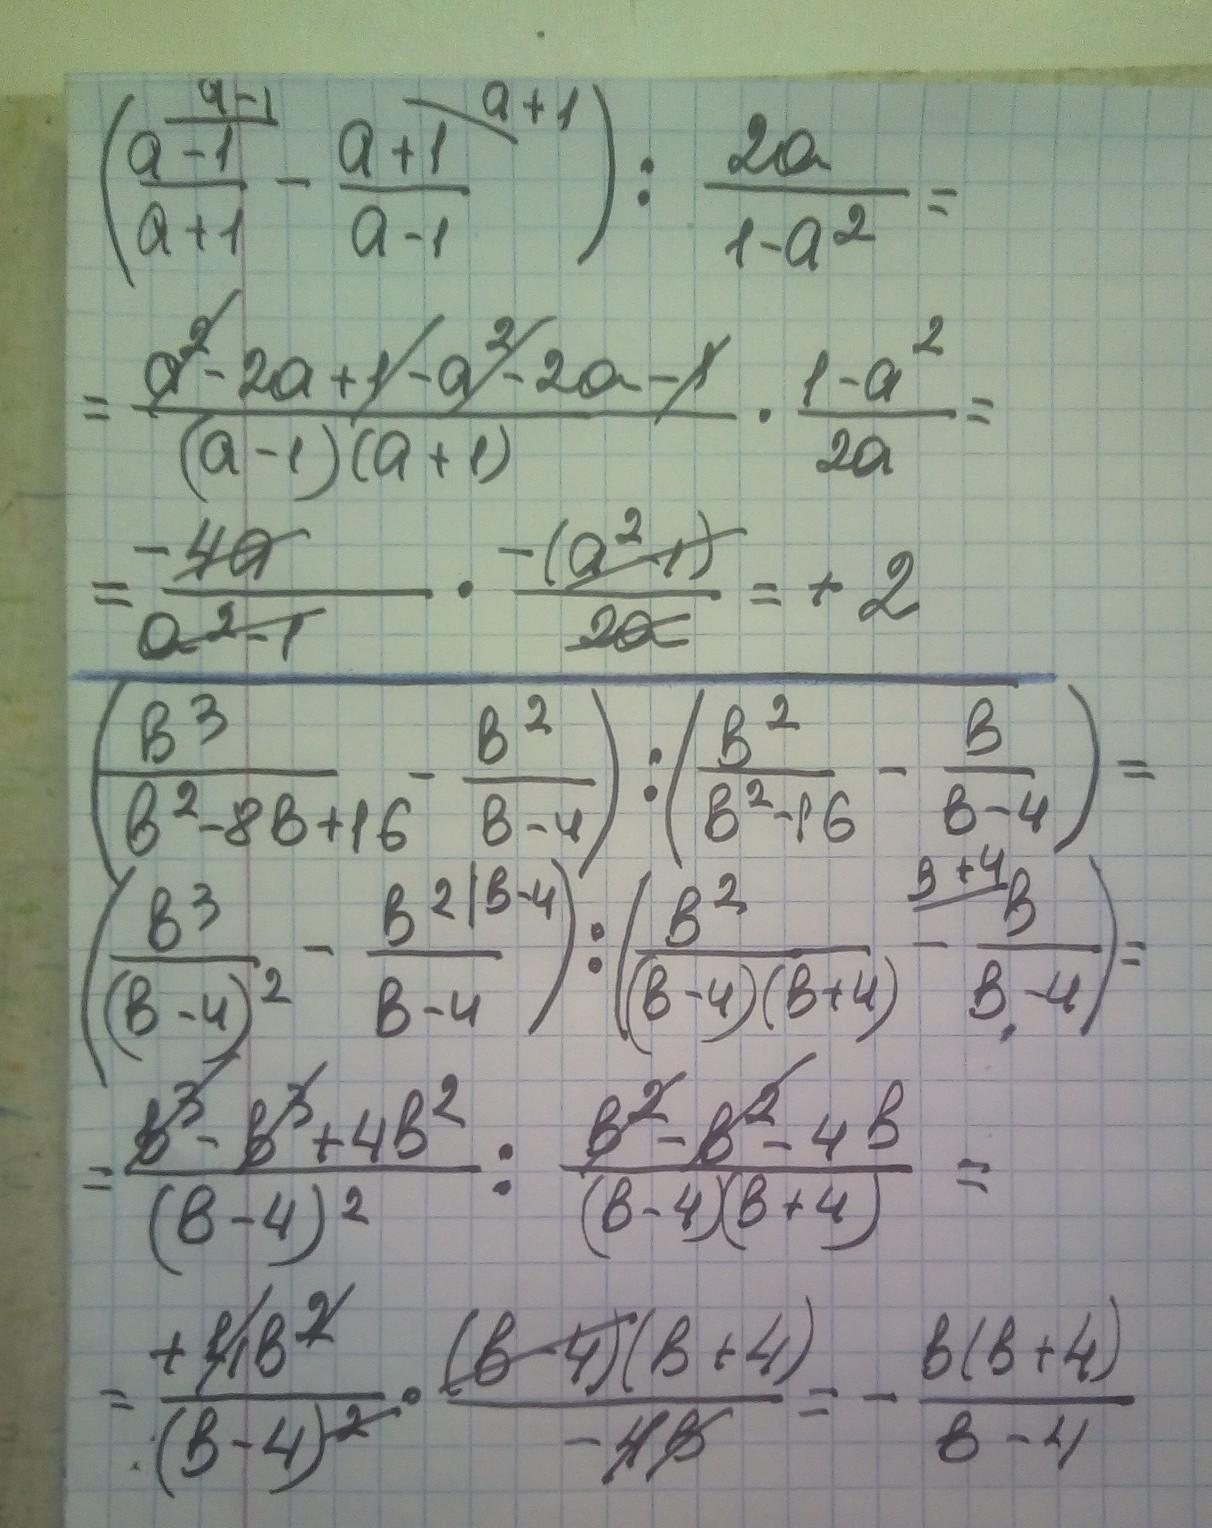 (a-1/a+1 a-1 - a+1/a-1 a+1) : 2a/1-a² =
= a²-2a+1-a²-2a-1/(a-1)(a+1) · 1-a²/2a =
= -4a/a²-1 · -(a²-1)/2a = + 2
(в³/в²-8в+16 - в²/в-4) : (в²/в²-16 - в/в-4) =
(в³/(в-4)² - в²|в-4/в-4) : (в²/(в-4)(в+4) - в+4 в/в-4) =
= в³-в³+4в²/(в-4)² : в²-в²-4в/(в-4)(в+4) =
= +4в²/(в-4)² · (в-4)(в+4)/-4в = - в(в+4)/в-4